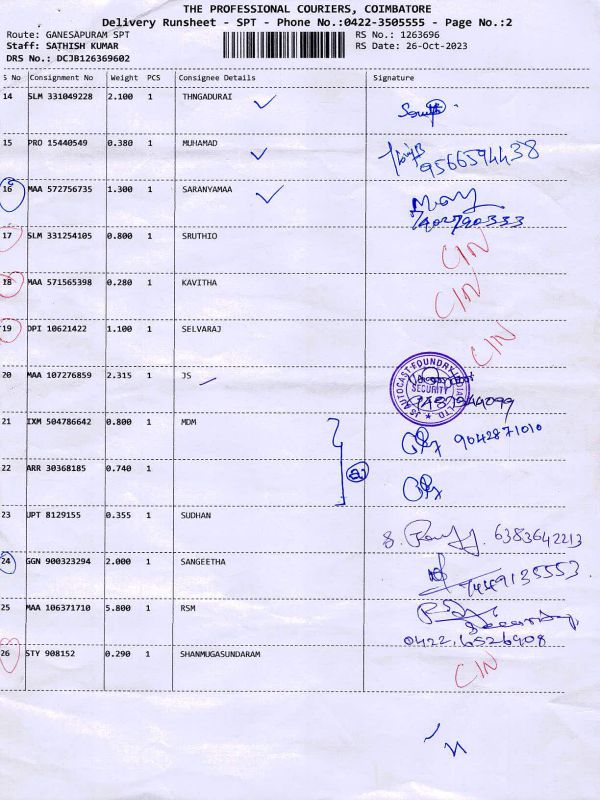 THE PROFESSIONAL COURIERS, COIMBATORE
Delivery Runsheet - SPT - Phone No.:0422-3505555 - Page No.:2
Route: GANESAPURAM SPT
Staff: SATHISH KUMAR
DRS No.: DCJB126369602
RS No.: 1263696
RS Date: 26-Oct-2023
S No Consignment No Weight PCS Consignee Details Signature
14 SLM 331049228 2.100 1 THNGADURAI
15 PRO 15440549 0.380 1 MUHAMAD
9566594438
16 MAA 572756735 1.300 1 SARANYAMAA
17 SLM 331254105 0.800 1 SRUTHIO CIN
18 MAA 571565398 0.280 1 KAVITHA CIN
19 DPI 10621422 1.100 1 SELVARAJ CIN
20 MAA 107276859 2.315 1 JS
JS AUTOCAST FOUNDRY INDIA LTD
SECURITY
21 IXM 504786642 0.800 1 MDM 9042871010
22 ARR 30368185 0.740 1
23 JPT 8129155 0.355 1 SUDHAN 6383642213
24 GGN 900323294 2.000 1 SANGEETHA
7449135553
25 MAA 106371710 5.800 1 RSM
0422.6526908
26 STY 908152 0.290 1 SHANMUGASUNDARAM CIN